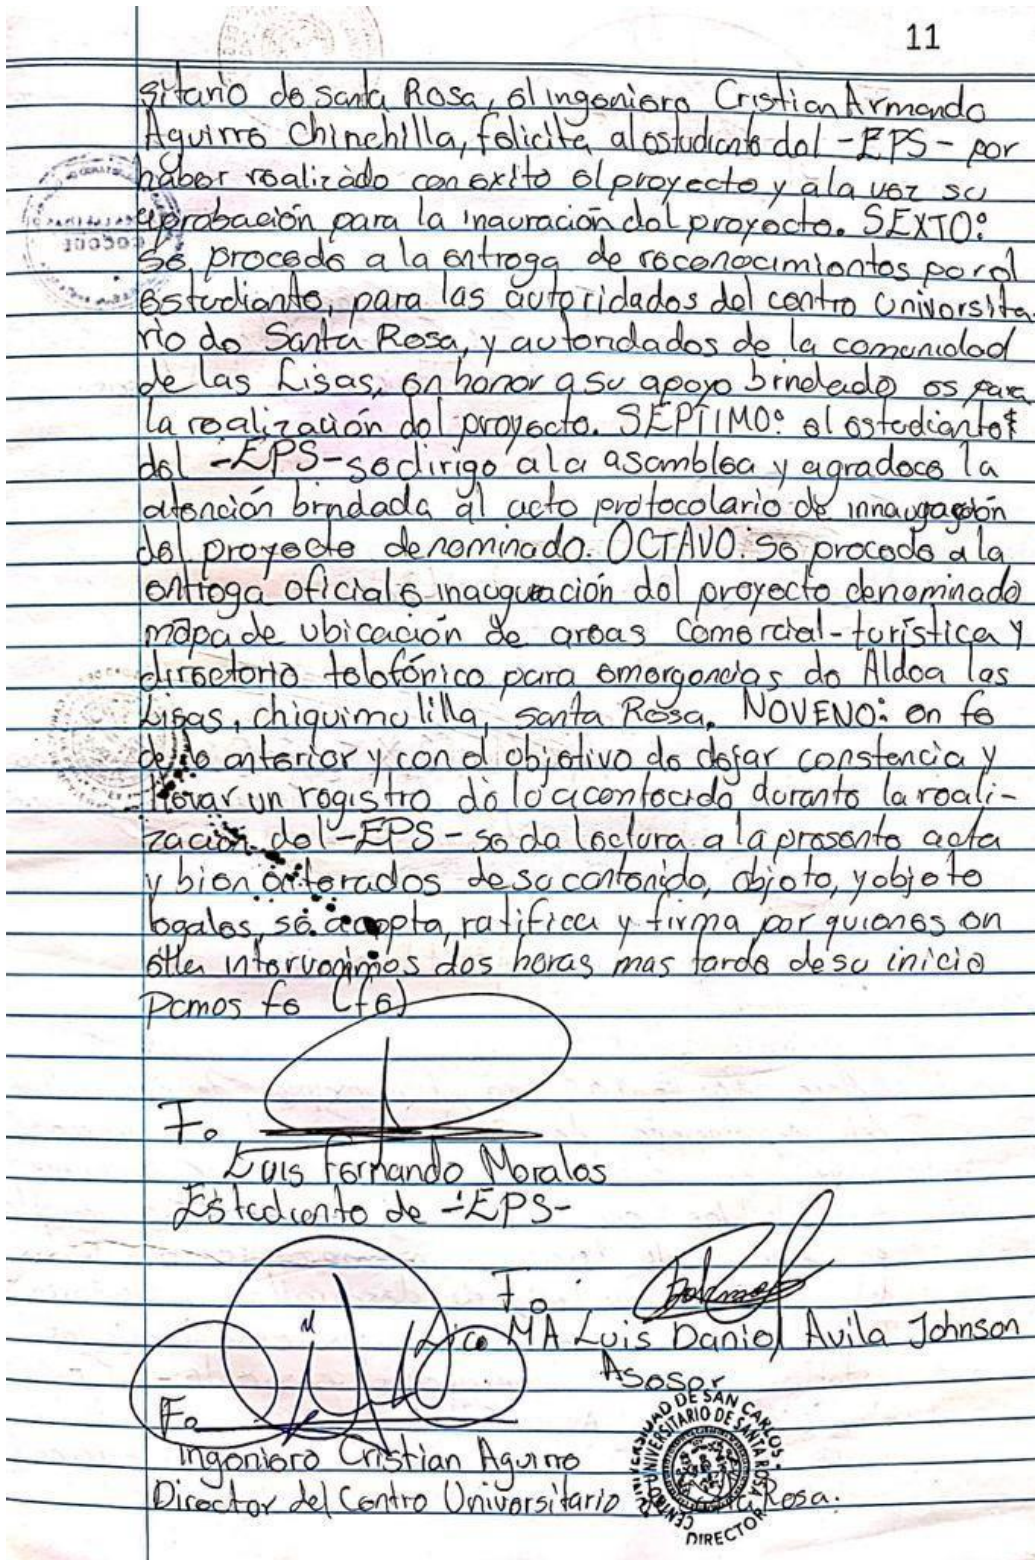 11
sitario de santa Rosa, el ingeniero Cristian Armando
Aguirre Chinchilla, felicita al estudiante del -EPS- por
haber realizado con exito el proyecto y a la vez su
aprobación para la inauración del proyecto. SEXTO:
Se procede a la entrega de reconocimientos por el
estudiante, para las autoridades del centro Universita
rio de Santa Rosa, y autoridades de la comunidad
de las Lisas, en honor a su apoyo brindado es para
la realización del proyecto. SÉPTIMO: el estudiante
del -EPS- se dirige a la asamblea y agradece la
atención brindada al acto protocolario de innaugación
del proyecto denominado. OCTAVO. se procede a la
entrega oficial e inauguración del proyecto denominado
mapa de ubicación de areas comercial-turística y
directorio telefónico para emergencias de Aldea las
Lisas, chiquimulilla, santa Rosa. NOVENO: en fe
de lo anterior y con el objetivo de dejar constencia y
llevar un registro de lo acontecido durante la reali-
zación del -EPS- se da lectura a la presente acta
y bien enterados de su contenido, objeto, y objeto
legales, se acepta, ratifica y firma por quienes en
ella intervenimos dos horas mas tarde de su inicio
Damos fe (fe)
F.
Luis Fernando Morales
Estudiante de -EPS-
F.
Lico MA Luis Daniel Avila Johnson
Asesor
F.
Ingeniero Cristian Aguirre
Director del Centro Universitario Rosa.
UNIVERSIDAD DE SAN CARLOS
CENTRO UNIVERSITARIO DE SANTA ROSA
DIRECTOR